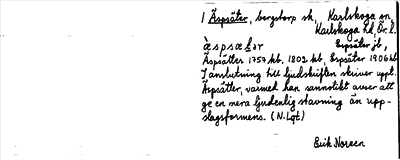 1 Äspsäter, bergstorp sk, Karlskoga sn,
Karlskoga hd, Ör. l.
Espsäter jb,
Äspsätter 1757 kb. 1802 kb, Espsäter 1906 kb
I anslutning till ljudskriften skriver uppt.
Äspsätter, varmed han sannolikt avser att
ge en mera ljudenlig stavning än upp-
slagsformens. (N. Lgt)
Erik Noreen